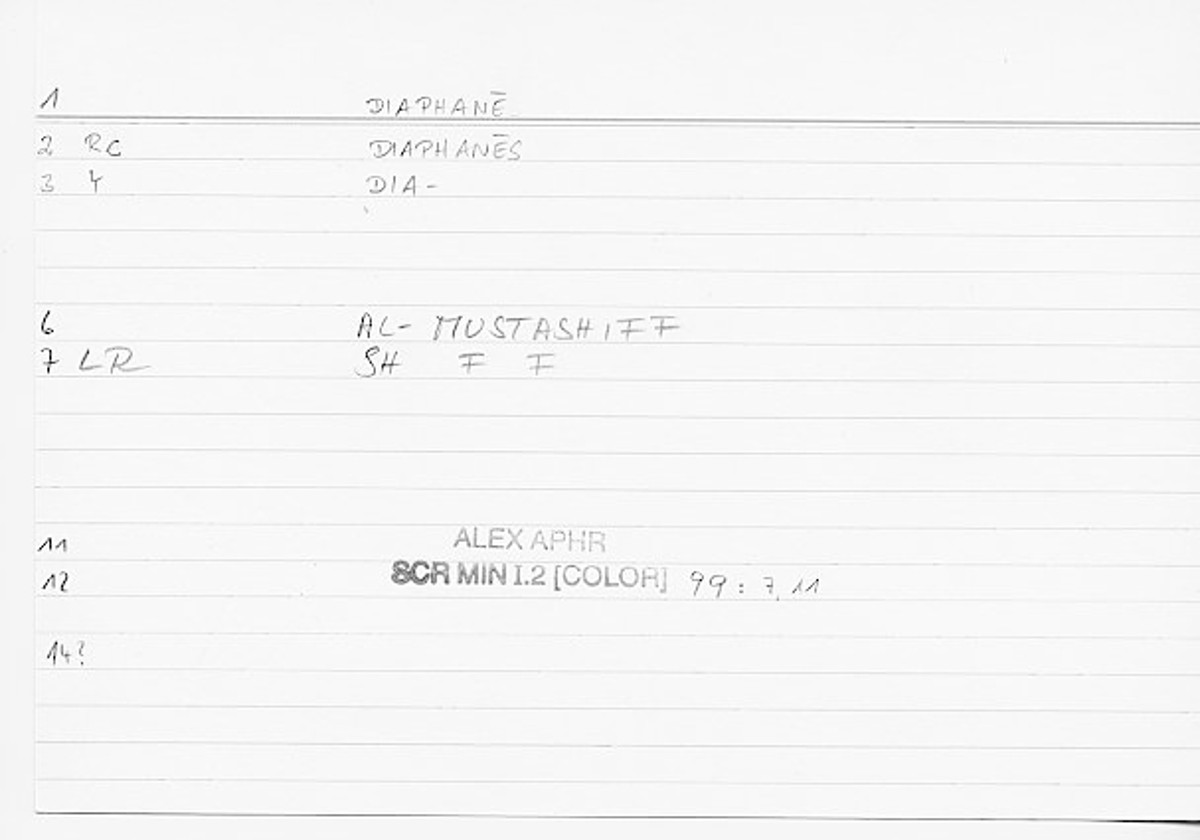 1 DIAPHANĒ
2 RC DIAPHANĒS
3 4 DIA-
6 AL- MUSTASHIFF
7 LR SH F F
11 ALEX APHR
12 SCR MIN I.2 [COLOR] 99 : 7, 11
14?